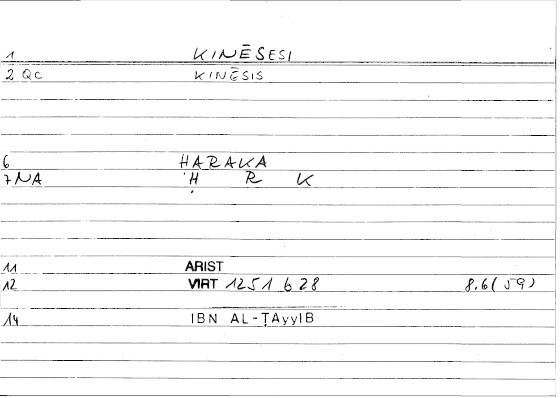 1 KINĒSESI
2 QC KINĒSIS
6 HARAKA
7 NA Ḥ R K
11 ARIST
12 VIRT 1251 b 28 8.6(59)
14 IBN AL-ṬAyyIB